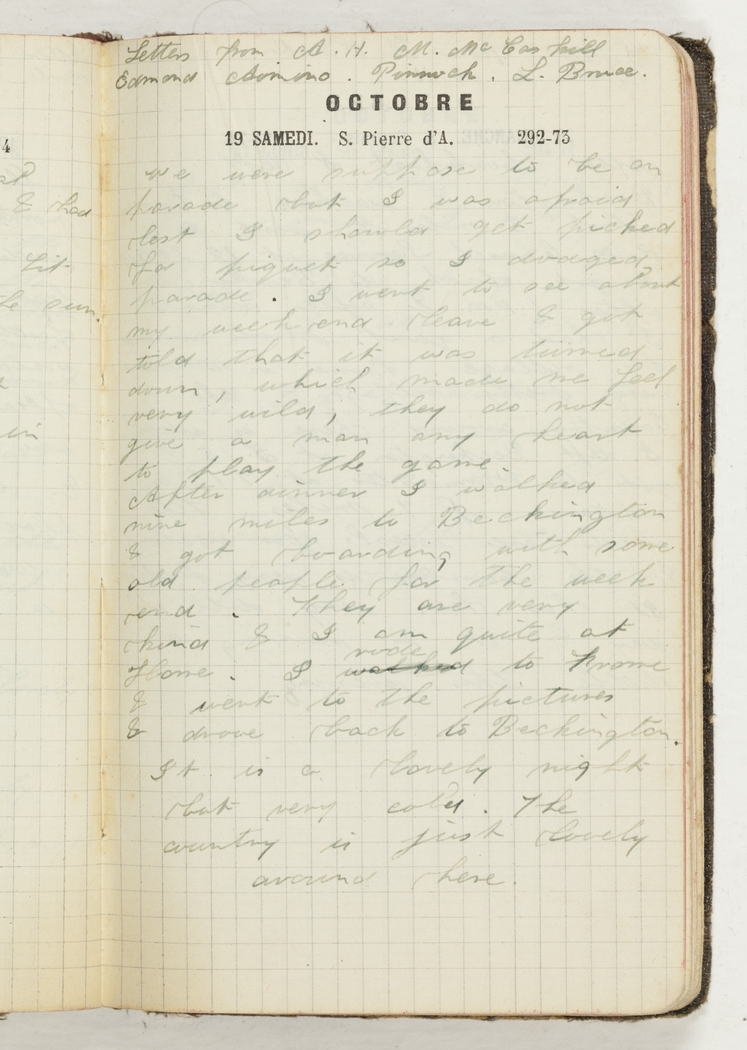 Letters from A. H. M. McCaskill
Edmond . Pinnock . L. Bruce.
OCTOBRE
19 SAMEDI. S. Pierre d'A. 292-73
4
& had
we were suppose to be on
parade but I was afraid
lest I should get picked
for piquet so I dodged
parade . I went to see about
my week end leave & got
told that it was turned
down , which made me feel
very wild , they do not
give a man any heart
to play the game .
After dinner I walked
nine miles to Beckington
& got boarding with some
old people for the week
end . They are very
kind & I am quite at
rode
Home . I walked to Frome
& went to the pictures
& drove back to Beckington.
It is a lovely night
but very cold . The
country is just lovely
around here .